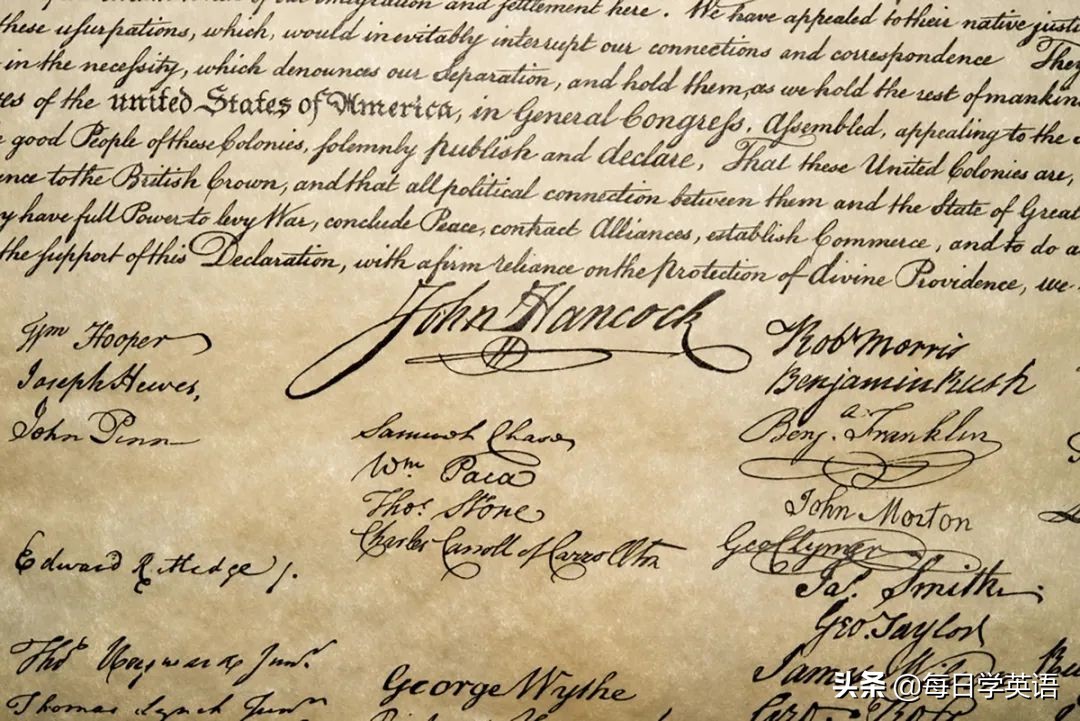 migration and settlement here. We have appealed to their native justi
these usurpations, which, would inevitably interrupt our connections and correspondence They
in the necessity, which denounces our Separation, and hold them, as we hold the rest of mankin
es of the united States of America, in General Congress, Assembled, appealing to the
good People of these Colonies, solemnly publish and declare, That these United Colonies are,
ence to the British Crown, and that all political connection between them and the State of Great
y have full Power to levy War, conclude Peace, contract Alliances, establish Commerce, and to do a
the support of this Declaration, with a firm reliance on the protection of divine Providence, we
John Hancock
Wm Hooper
Joseph Hewes,
John Penn
Edward Rutledge /.
Thos Heyward Junr.
Thomas Lynch Junr
Samuel Chase
Wm Paca
Thos. Stone
Charles Carroll of Carrollton
George Wythe
Robt Morris
Benjamin Rush
Benja. Franklin
John Morton
Geo Clymer
Jas. Smith
Geo. Taylor
James
头条 @每日学英语